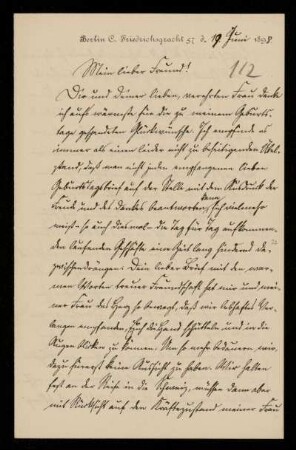 Berlin C. Friedrichsgracht 57 d. 19 Juni 1898.
112
Mein lieber Freund!
Dir und Deiner lieben, verehrten Frau danke
ich aufs wärmste für die zu meinem Geburts-
tage gesendeten Glückwünsche. Ich empfinde es
immer als einen leider nicht zu beseitigenden Übel-
stand, daß man nicht jeden empfangenen lieben
Geburtstagsbrief auf der Stelle mit dem Ausdruck der
Freude und des Dankes beantworten kann, sich vielmehr
so auch diesmal die Tag für Tag aufkommen-
den laufenden Geschäfte eine Zeit lang hindernd da-
zwischendrängen. Dein lieber Brief mit den war-
men Worten treuer Freundschaft hat mir und mei-
ner Frau das Herz so bewegt, daß wir lebhaftes Ver-
langen empfanden, Euch die Hand schütteln und in die
Augen blicken zu können. Um so mehr bedauern wir,
dazu hierorts keine Aussicht zu haben. Wir halten
fest an der Reise in die Schweiz, müssen dann aber
mit Rücksicht auf den Kräftezustand meiner Frau